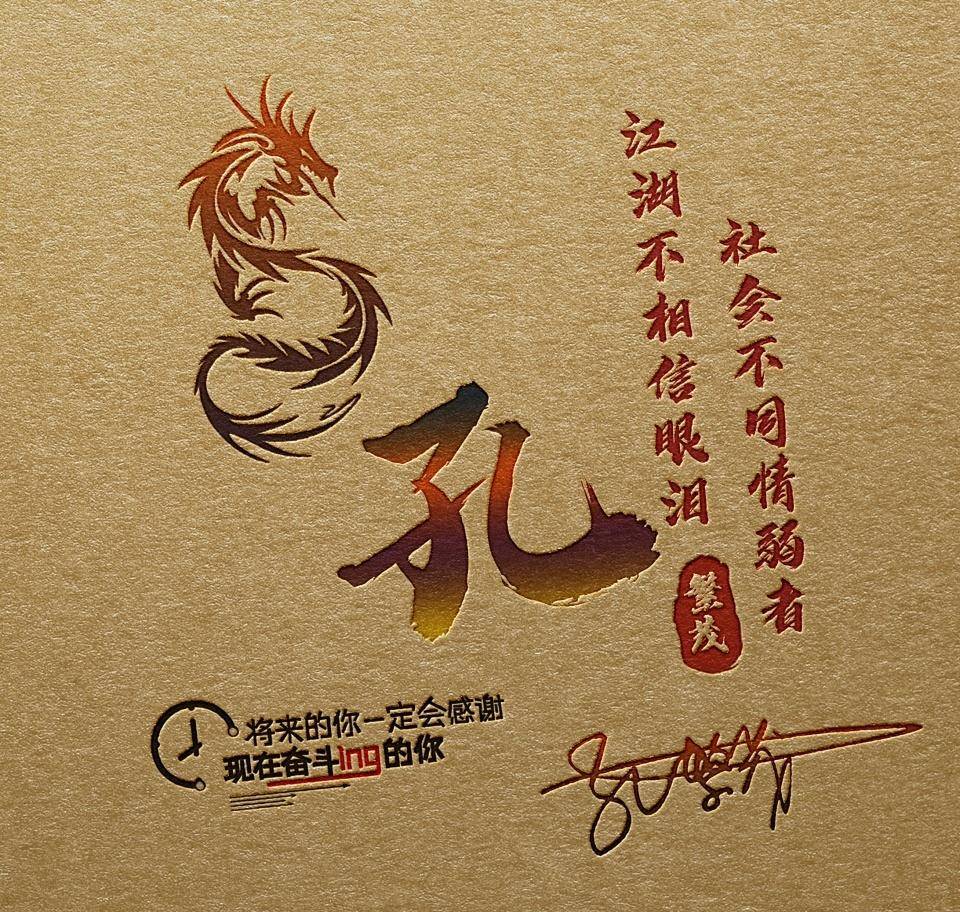 社会不同情弱者
江湖不相信眼泪
孔
繁茂
将来的你一定会感谢
现在奋斗ing的你
孔繁茂